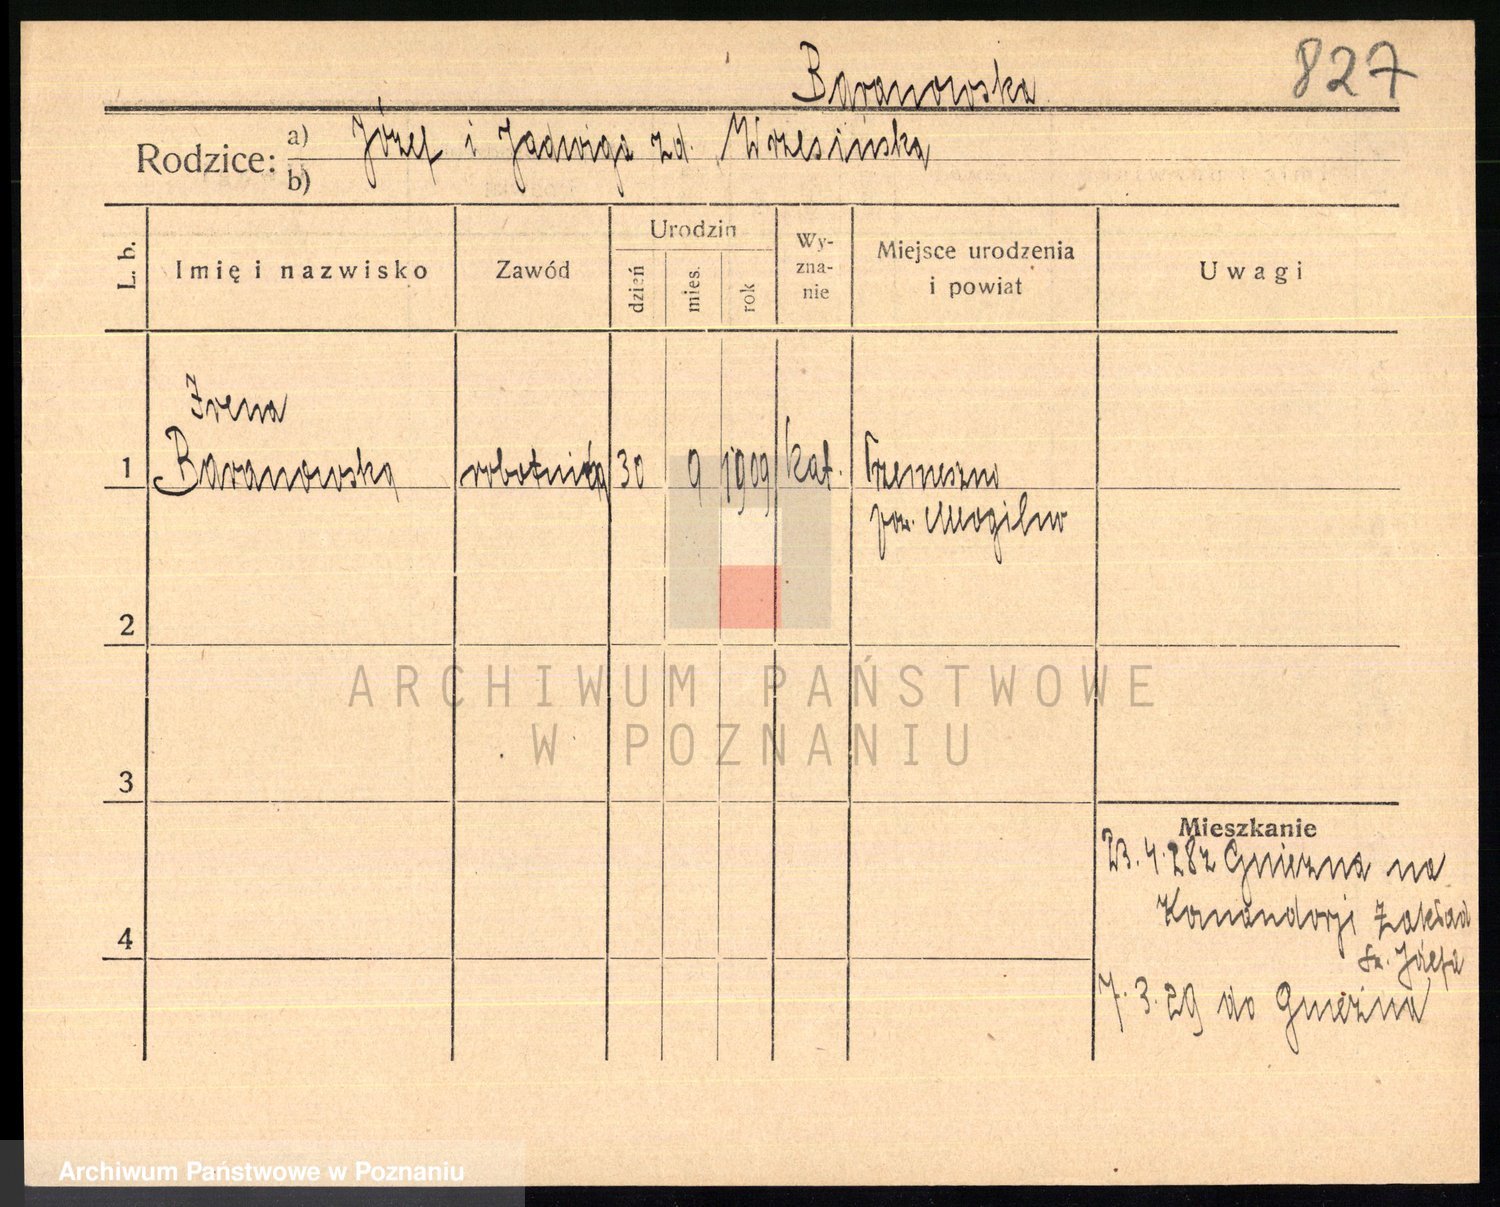 Baranowska
827
Rodzice: a) Józef i Jadwiga zd. Wrzesińska
b)
L. b.
Imię i nazwisko
Zawód
Urodzin
dzień
mies.
rok
Wy-
zna-
nie
Miejsce urodzenia
i powiat
Uwagi
Irena
1 Baranowska robotnica 30 9 1909 kat. Trzemeszno
pow. Mogilno
2
ARCHIWUM PAŃSTWOWE
W POZNANIU
3
Mieszkanie
23.4.28 z Gniezna na
Komandorji Zakład
4
św. Józefa
7.3.29 do Gniezna
Archiwum Państwowe w Poznaniu